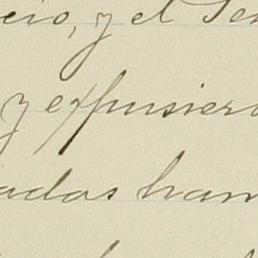 cio, y el Se
y expusiero
ados han